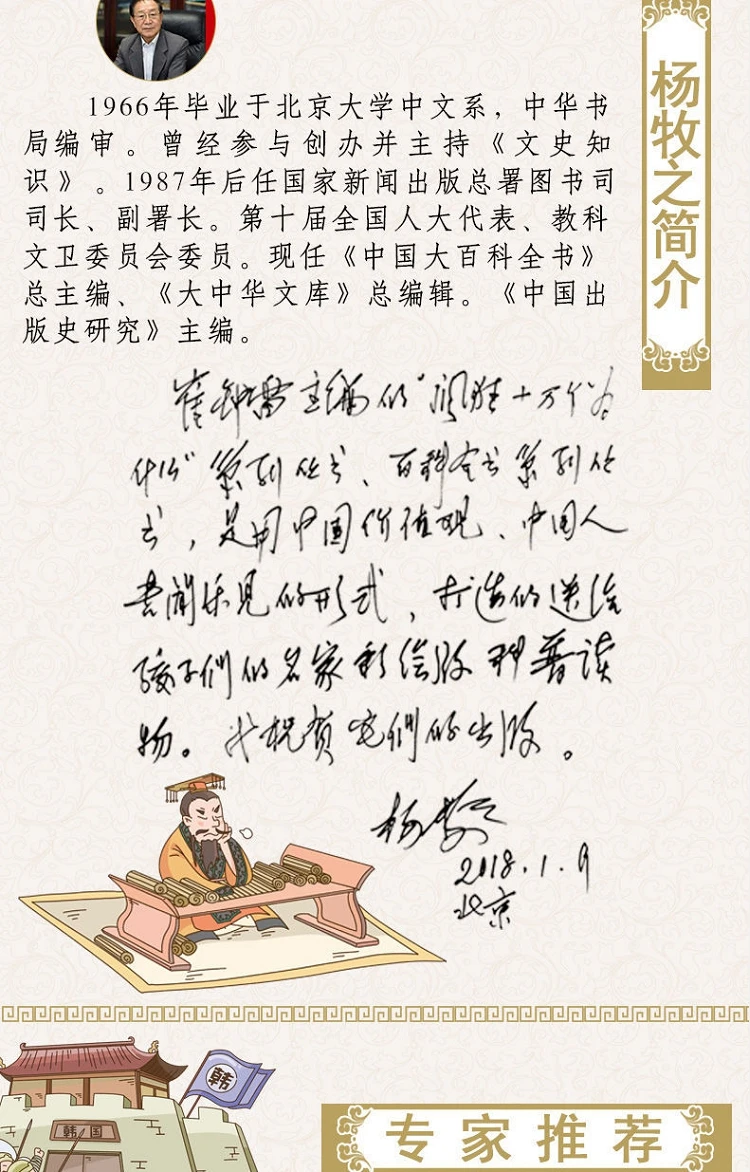 杨牧之简介
1966年毕业于北京大学中文系，中华书
局编审。曾经参与创办并主持《文史知
识》。1987年后任国家新闻出版总署图书司
司长、副署长。第十届全国人大代表、教科
文卫委员会委员。现任《中国大百科全书》
总主编、《大中华文库》总编辑。《中国出
版史研究》主编。
崔钟雷主编的"阅胜十万个为
什么"系列丛书、百科全书系列丛
书，是用中国价值观、中国人
喜闻乐见的形式，打造的送给
孩子们的名家彩绘版科普读
物。我祝贺它们的出版。
杨牧之
2018.1.9
北京
韩
韩国
专家推荐